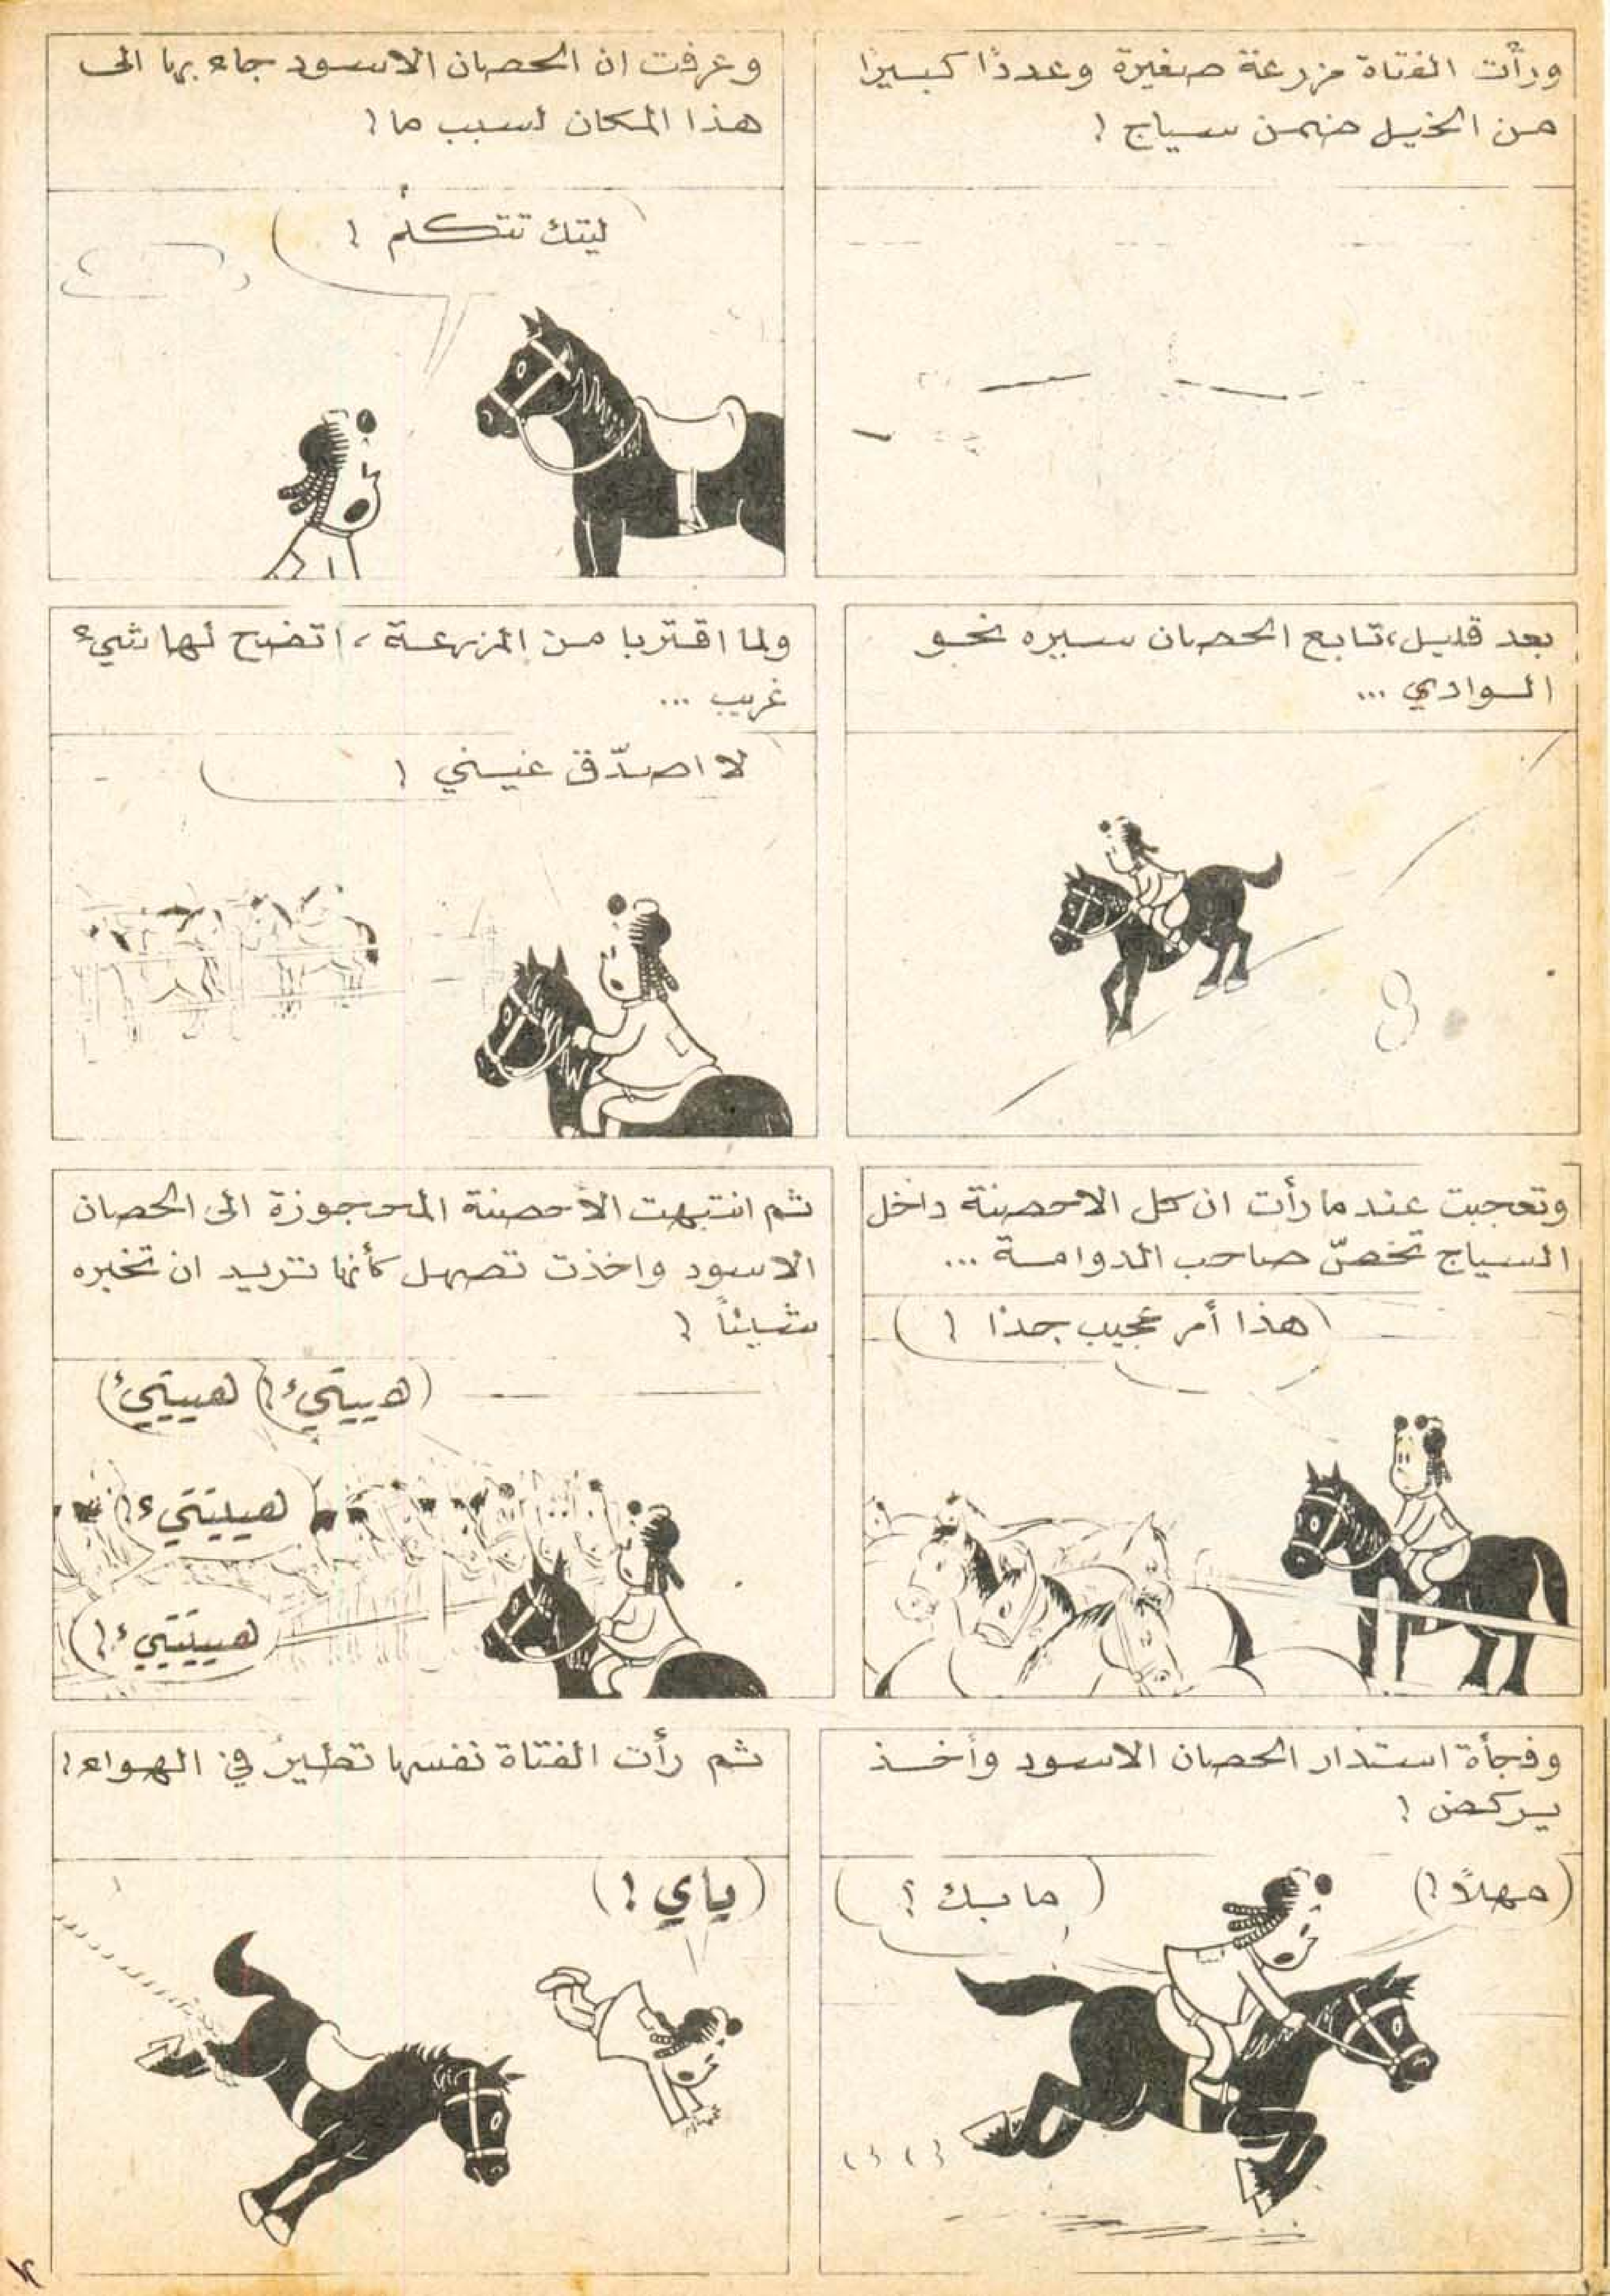 ورأت الفتاة مزرعة صغيرة وعددًا كبيرًا
من الخيل ضمن سياج !
وعرفت ان الحصان الاسود جاء بها الى
هذا المكان لسبب ما !
ليتك تتكلم !
بعد قليل، تابع الحصان سيره نحو
الوادي ...
ولما اقتربا من المزرعة، اتضح لها شيء
غريب ...
لا اصدّق عينيّ !
وتعجبت عندما رأت ان كل الاحصنة داخل
السياج تخصّ صاحب الدوامة ...
هذا أمر عجيب جدًا !
ثم انتبهت الأحصنة المحجوزة الى الحصان
الاسود واخذت تصهل كأنها تريد ان تخبره
شيئاً !
هييتيء !
هييتيء
هييتتيء !
هييتتيء !
وفجأة استدار الحصان الاسود وأخذ
يركض !
مهلاً !
ما بك ؟
ثم رأت الفتاة نفسها تطير في الهواء !
ياي !